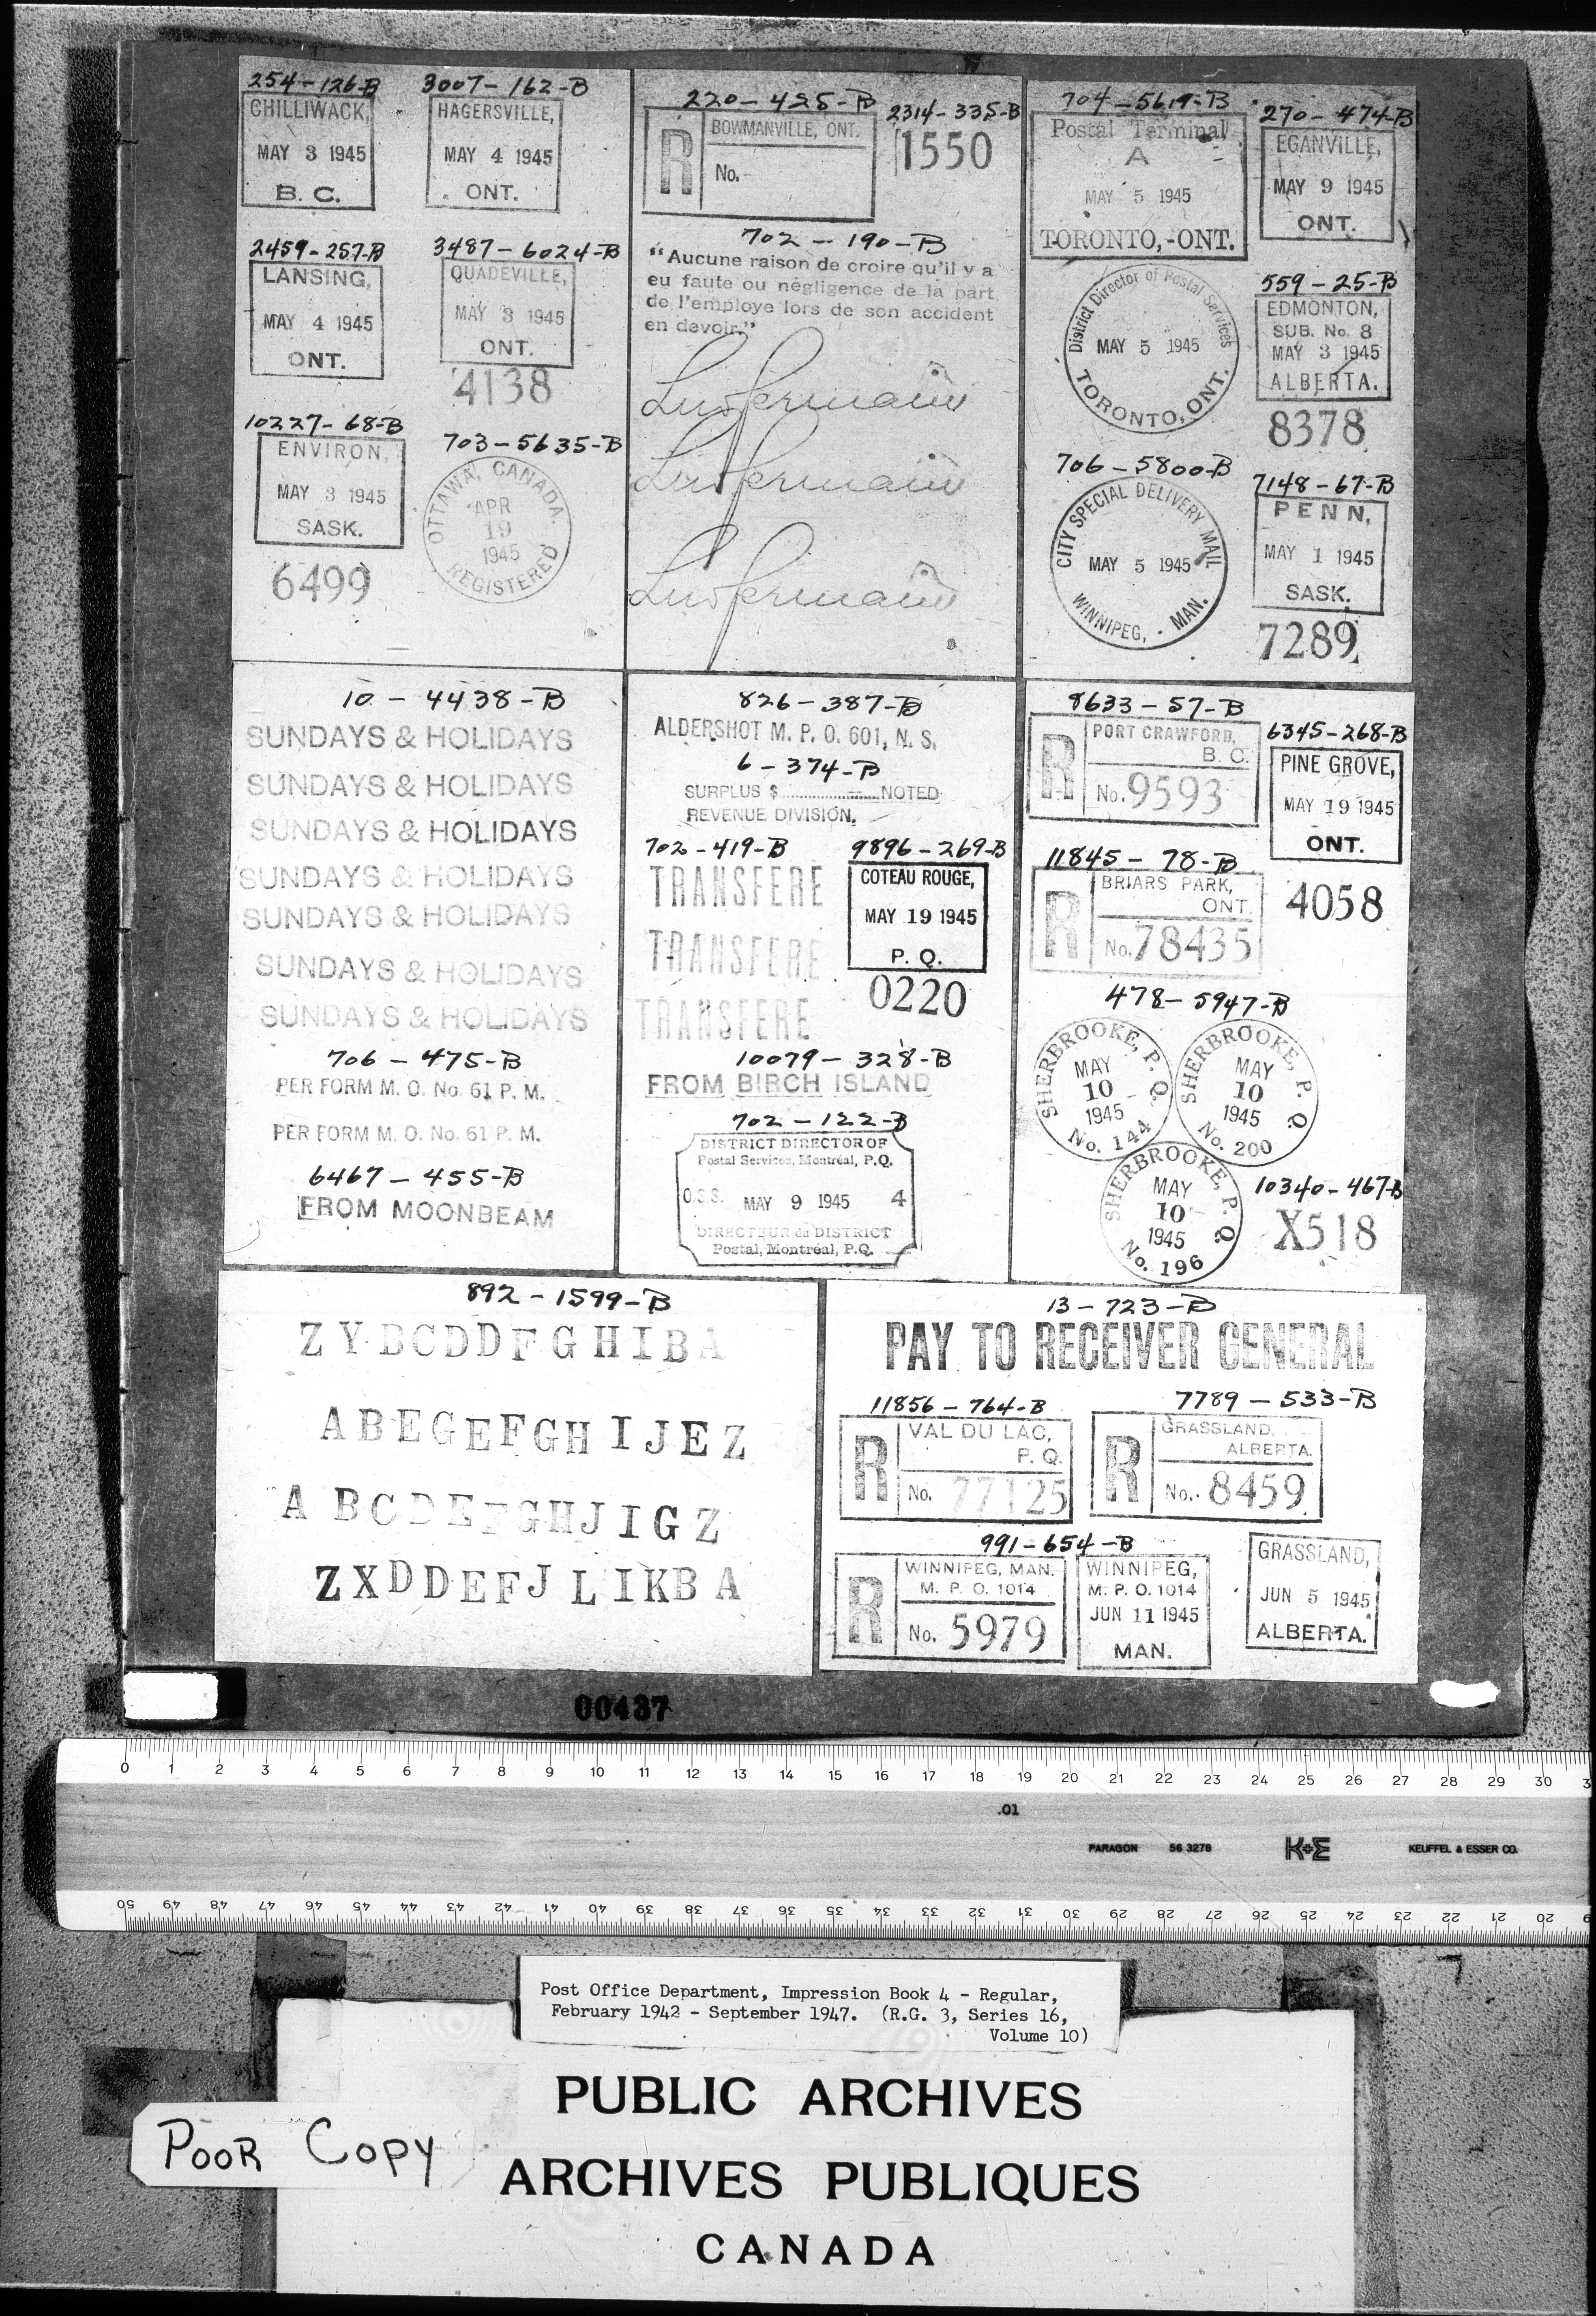 254-126-B
CHILLIWACK,
MAY 3 1945
B. C.
3007-162-B
HAGERSVILLE,
MAY 4 1945
ONT.
2459-257-B
LANSING,
MAY 4 1945
ONT.
3487-6024-B
QUADEVILLE,
MAY 3 1945
ONT.
4138
10227-68-B
ENVIRON,
MAY 3 1945
SASK.
6499
703-5635-B
OTTAWA, CANADA.
APR
19
1945
REGISTERED
220-425-B
R
BOWMANVILLE, ONT.
No.
2314-335-B
1550
702-190-B
"Aucune raison de croire qu'il y a
eu faute ou négligence de la part
de l'employe lors de son accident
en devoir."
704-5619-B
Postal Terminal
A
MAY 5 1945
TORONTO,-ONT.
270-474-B
EGANVILLE,
MAY 9 1945
ONT.
District Director of Postal Services
MAY 5 1945
TORONTO, ONT.
559-25-B
EDMONTON,
SUB. No. 8
MAY 3 1945
ALBERTA.
8378
706-5800-B
CITY SPECIAL DELIVERY MAIL
MAY 5 1945
WINNIPEG, - MAN.
7148-67-B
PENN,
MAY 1 1945
SASK.
7289
10-4438-B
SUNDAYS & HOLIDAYS
SUNDAYS & HOLIDAYS
SUNDAYS & HOLIDAYS
SUNDAYS & HOLIDAYS
SUNDAYS & HOLIDAYS
SUNDAYS & HOLIDAYS
SUNDAYS & HOLIDAYS
706-475-B
PER FORM M. O. No. 61 P. M.
PER FORM M. O. No. 61 P. M.
6467-455-B
FROM MOONBEAM
826-387-B
ALDERSHOT M. P. O. 601, N. S.
6-374-B
SURPLUS $..................NOTED
REVENUE DIVISION.
702-419-B
TRANSFERE
TRANSFERE
TRANSFERE
9896-269-B
COTEAU ROUGE,
MAY 19 1945
P. Q.
0220
10079-328-B
FROM BIRCH ISLAND
702-122-B
DISTRICT DIRECTOR OF
Postal Services, Montréal, P.Q.
O.S.S. MAY 9 1945 4
DIRECTEUR du DISTRICT
Postal, Montréal, P.Q.
8633-57-B
R
PORT CRAWFORD,
B. C.
No. 9593
6345-268-B
PINE GROVE,
MAY 19 1945
ONT.
4058
11845-78-B
R
BRIARS PARK,
ONT.
No. 78435
478-5947-B
SHERBROOKE, P. Q.
MAY
10
1945
No. 144
SHERBROOKE, P. Q
MAY
10
1945
No. 200
SHERBROOKE, P. Q.
MAY
10
1945
No. 196
10340-467-B
X518
892-1599-B
Z Y B C D D F G H I B A
A B E G E F G H I J E Z
A B C D E F G H J I G Z
Z X D D E F J L I K B A
13-723-B
PAY TO RECEIVER GENERAL
11856-764-B
R
VAL DU LAC,
P. Q.
No. 77125
7789-533-B
R
GRASSLAND,
ALBERTA.
No. 8459
991-654-B
R
WINNIPEG, MAN.
M. P. O. 1014
No. 5979
WINNIPEG,
M. P. O. 1014
JUN 11 1945
MAN.
GRASSLAND,
JUN 5 1945
ALBERTA.
00437
0 1 2 3 4 5 6 7 8 9 10 11 12 13 14 15 16 17 18 19 20 21 22 23 24 25 26 27 28 29 30 3
.01
PARAGON 56 3278 K+E KEUFFEL & ESSER CO.
50 49 48 47 46 45 44 43 42 41 40 39 38 37 36 35 34 33 32 31 30 29 28 27 26 25 24 23 22 21 20 19
Post Office Department, Impression Book 4 - Regular,
February 1942 - September 1947. (R.G. 3, Series 16,
Volume 10)
PUBLIC ARCHIVES
POOR COPY
ARCHIVES PUBLIQUES
CANADA